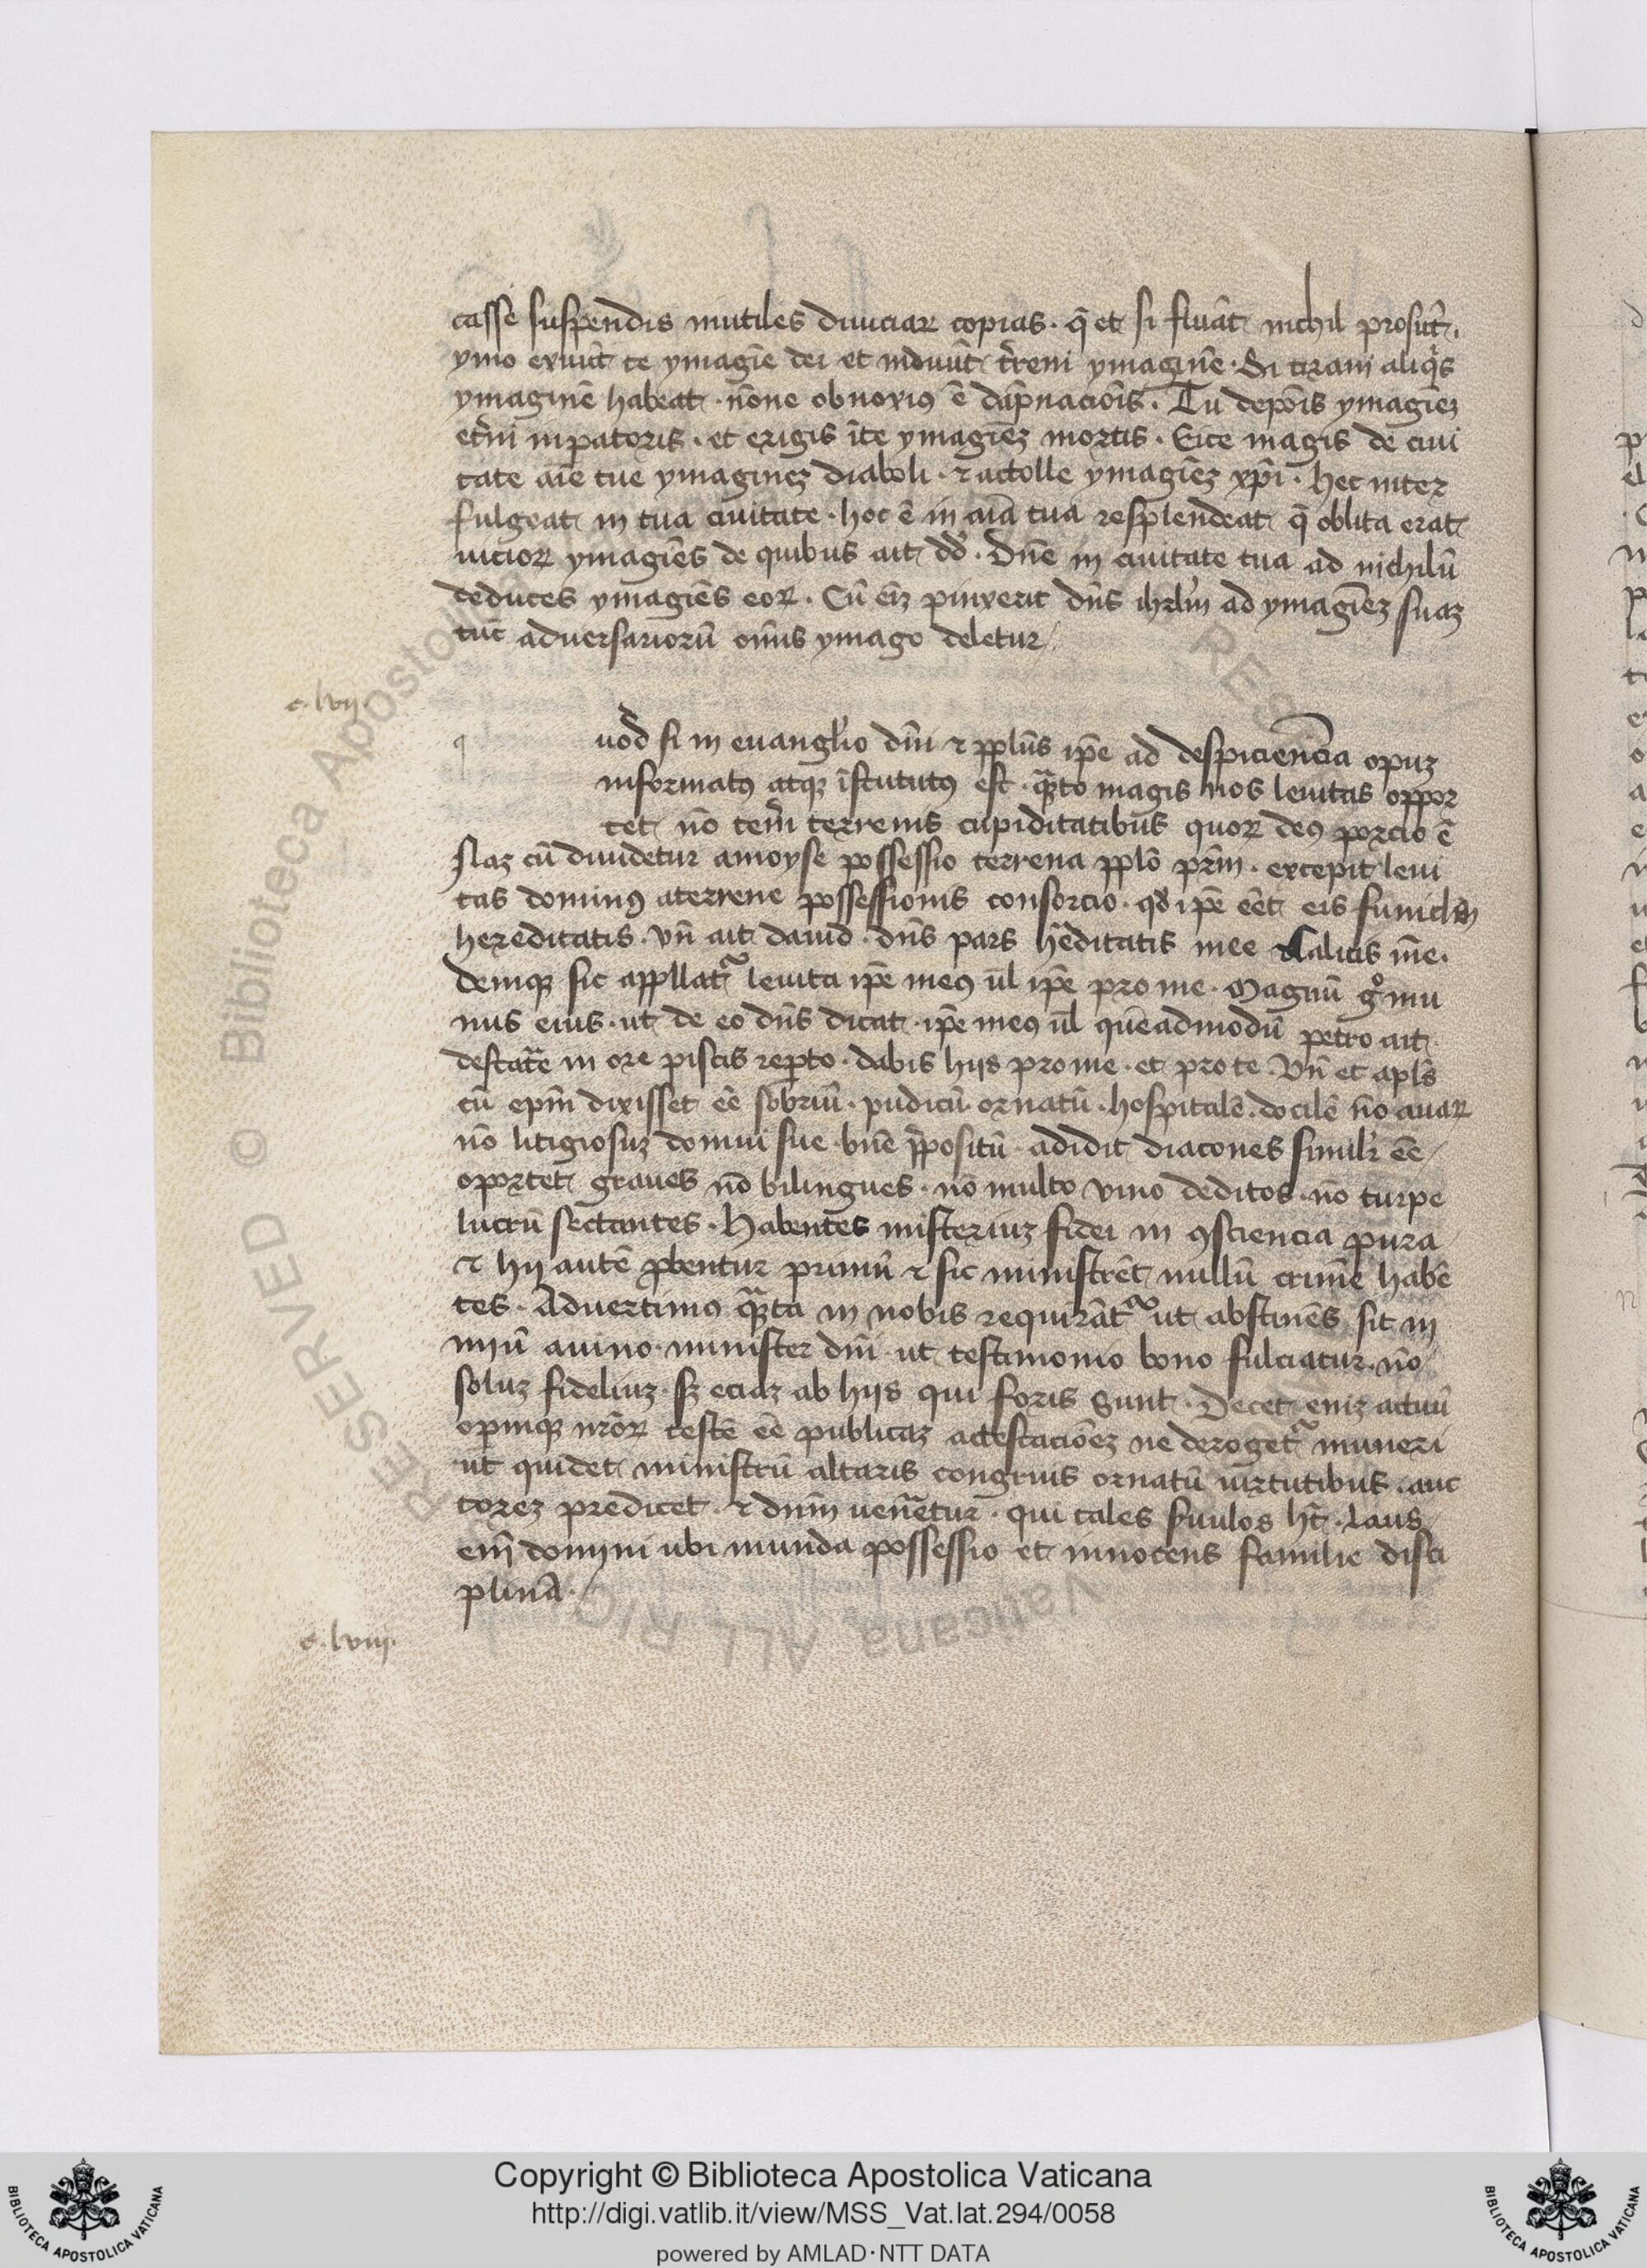 casse suspendis inutiles diuiciaꝝ copias · q̄ et si fluāt nichil prosūt ·
ymo exuūt te ymagīe dei et induūt t̄reni ymaginē · Si tirani aliq̄s
ymaginē habeat · nōne obnoxiꝰ ē dāpnaciōis · Tu depōis ymagīeꝫ
et̄ni inpatoris · et erigis īte ymagīeꝫ mortis · Eice magis de ciui
tate aīe tue ymagineꝫ diaboli · ⁊ actolle ymagīeꝫ xp̄i · hec inter
fulgeat in tua ciuitate · hoc ē in aīa tua resplendeat q̄ oblita erat
uicioꝝ ymagīes de quibus ait dd̄ · Dn̄e in ciuitate tua ad nichilū
deduces ymagīes eoꝝ · Cū eīꝫ pinxerit dn̄s ihrl̄m ad ymagīeꝫ suaꝫ
tūc aduersariorū om̄is ymago deletur
c · lvij ·
q
uod si in euangl̄io dn̄i ⁊ ppl̄us ip̄e ad despicienciā opuꝫ
informatꝰ atqꝫ īstitutꝰ est · q̄ꝫto magis uos leuitas oppor
tet nō ten̄i terrenis cupiditatibus quoꝝ deꝰ porcio ē
Naꝫ cū diuidetur amoyse possessio terrena pplō pr̄m · excepit leui
tas dominꝰ aterrene possessionis consorcio · qꝺ ip̄e eēt eis funiclꝰ
hereditatis · vn̄ ait dauid · dn̄s pars h̄editatis mee ⁊ calicis mē ·
deniqꝫ sic appllat̄ leuita ip̄e meꝰ ul̄ ip̄e pro me · Magnū gͦ mu
nus eius · ut de eo dn̄s dicat · ip̄e meꝰ ul̄ quēadmodū petro ait ·
destatēe in ore piscis rep̄to · dabis hijs pro me · et pro te · Vn̄ et apl̄s
cū epm̄ dixisset eē sobriū · pudicū ornatū · hospitalē · docilē nō auaꝝ
nō litigiosuꝫ domui sue bn̄e p̄positū · adidit diacones simil̄r eē
oportet graues nō bilingues · nō multo vino deditos · nō turpe
lucrū sectantes · Habentes misteriuꝫ fidei in ꝯsciencia pura
⁊ hij autē ꝓbentur primū ⁊ sic ministrēt nullū crimē habē
tes · Aduertimꝰ q̄ꝫta in nobis requirāt̄ ut abstinēs sit in
miū auino minister dn̄i · ut testimonio bono fulciatur · nō
soluꝫ fideliuꝫ · sꝫ eciaꝫ ab hijs qui foris sunt · Decet eniꝫ actuū
op̄imqꝫ nr̄oꝝ testē eē publicaꝫ attestaciōeꝫ ne deroget̄ muneri
ut quidet ministrū altaris congruis ornatū uirtutibus · auc
toreꝫ predicet · ⁊ dnm̄ uen̄etur · qui tales ẜuulos hꝫ̄t · Laus
em̄ domini ubi munda possessio et innocens familie disci
plina ·
c · lviij ·
Copyright © Biblioteca Apostolica Vaticana
http://digi.vatlib.it/view/MSS_Vat.lat.294/0058
powered by AMLAD·NTT DATA